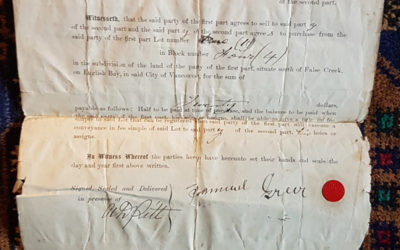 of the second part.
Witnesseth, that the said party of the first part agrees to sell to said party
of the second part and the said party of the second part agrees to purchase from the
said party of the first part Lot number One (1)
in Block number Four (4)
in the subdivision of the land of the party of the first part, situate north of False Creek,
on English Bay, in said City of Vancouver, for the sum of
Twenty dollars,
payable as follows: Half to be paid at time of purchase, and the balance to be paid when
the said party of the first part
conveyance in fee simple of said Lot to said party of the second part, his heirs or
assigns.
In Witness Whereof the parties hereto have hereunto set their hands and seals the
day and year first above written.
Signed, Sealed and Delivered
in presence of
Samuel Greer